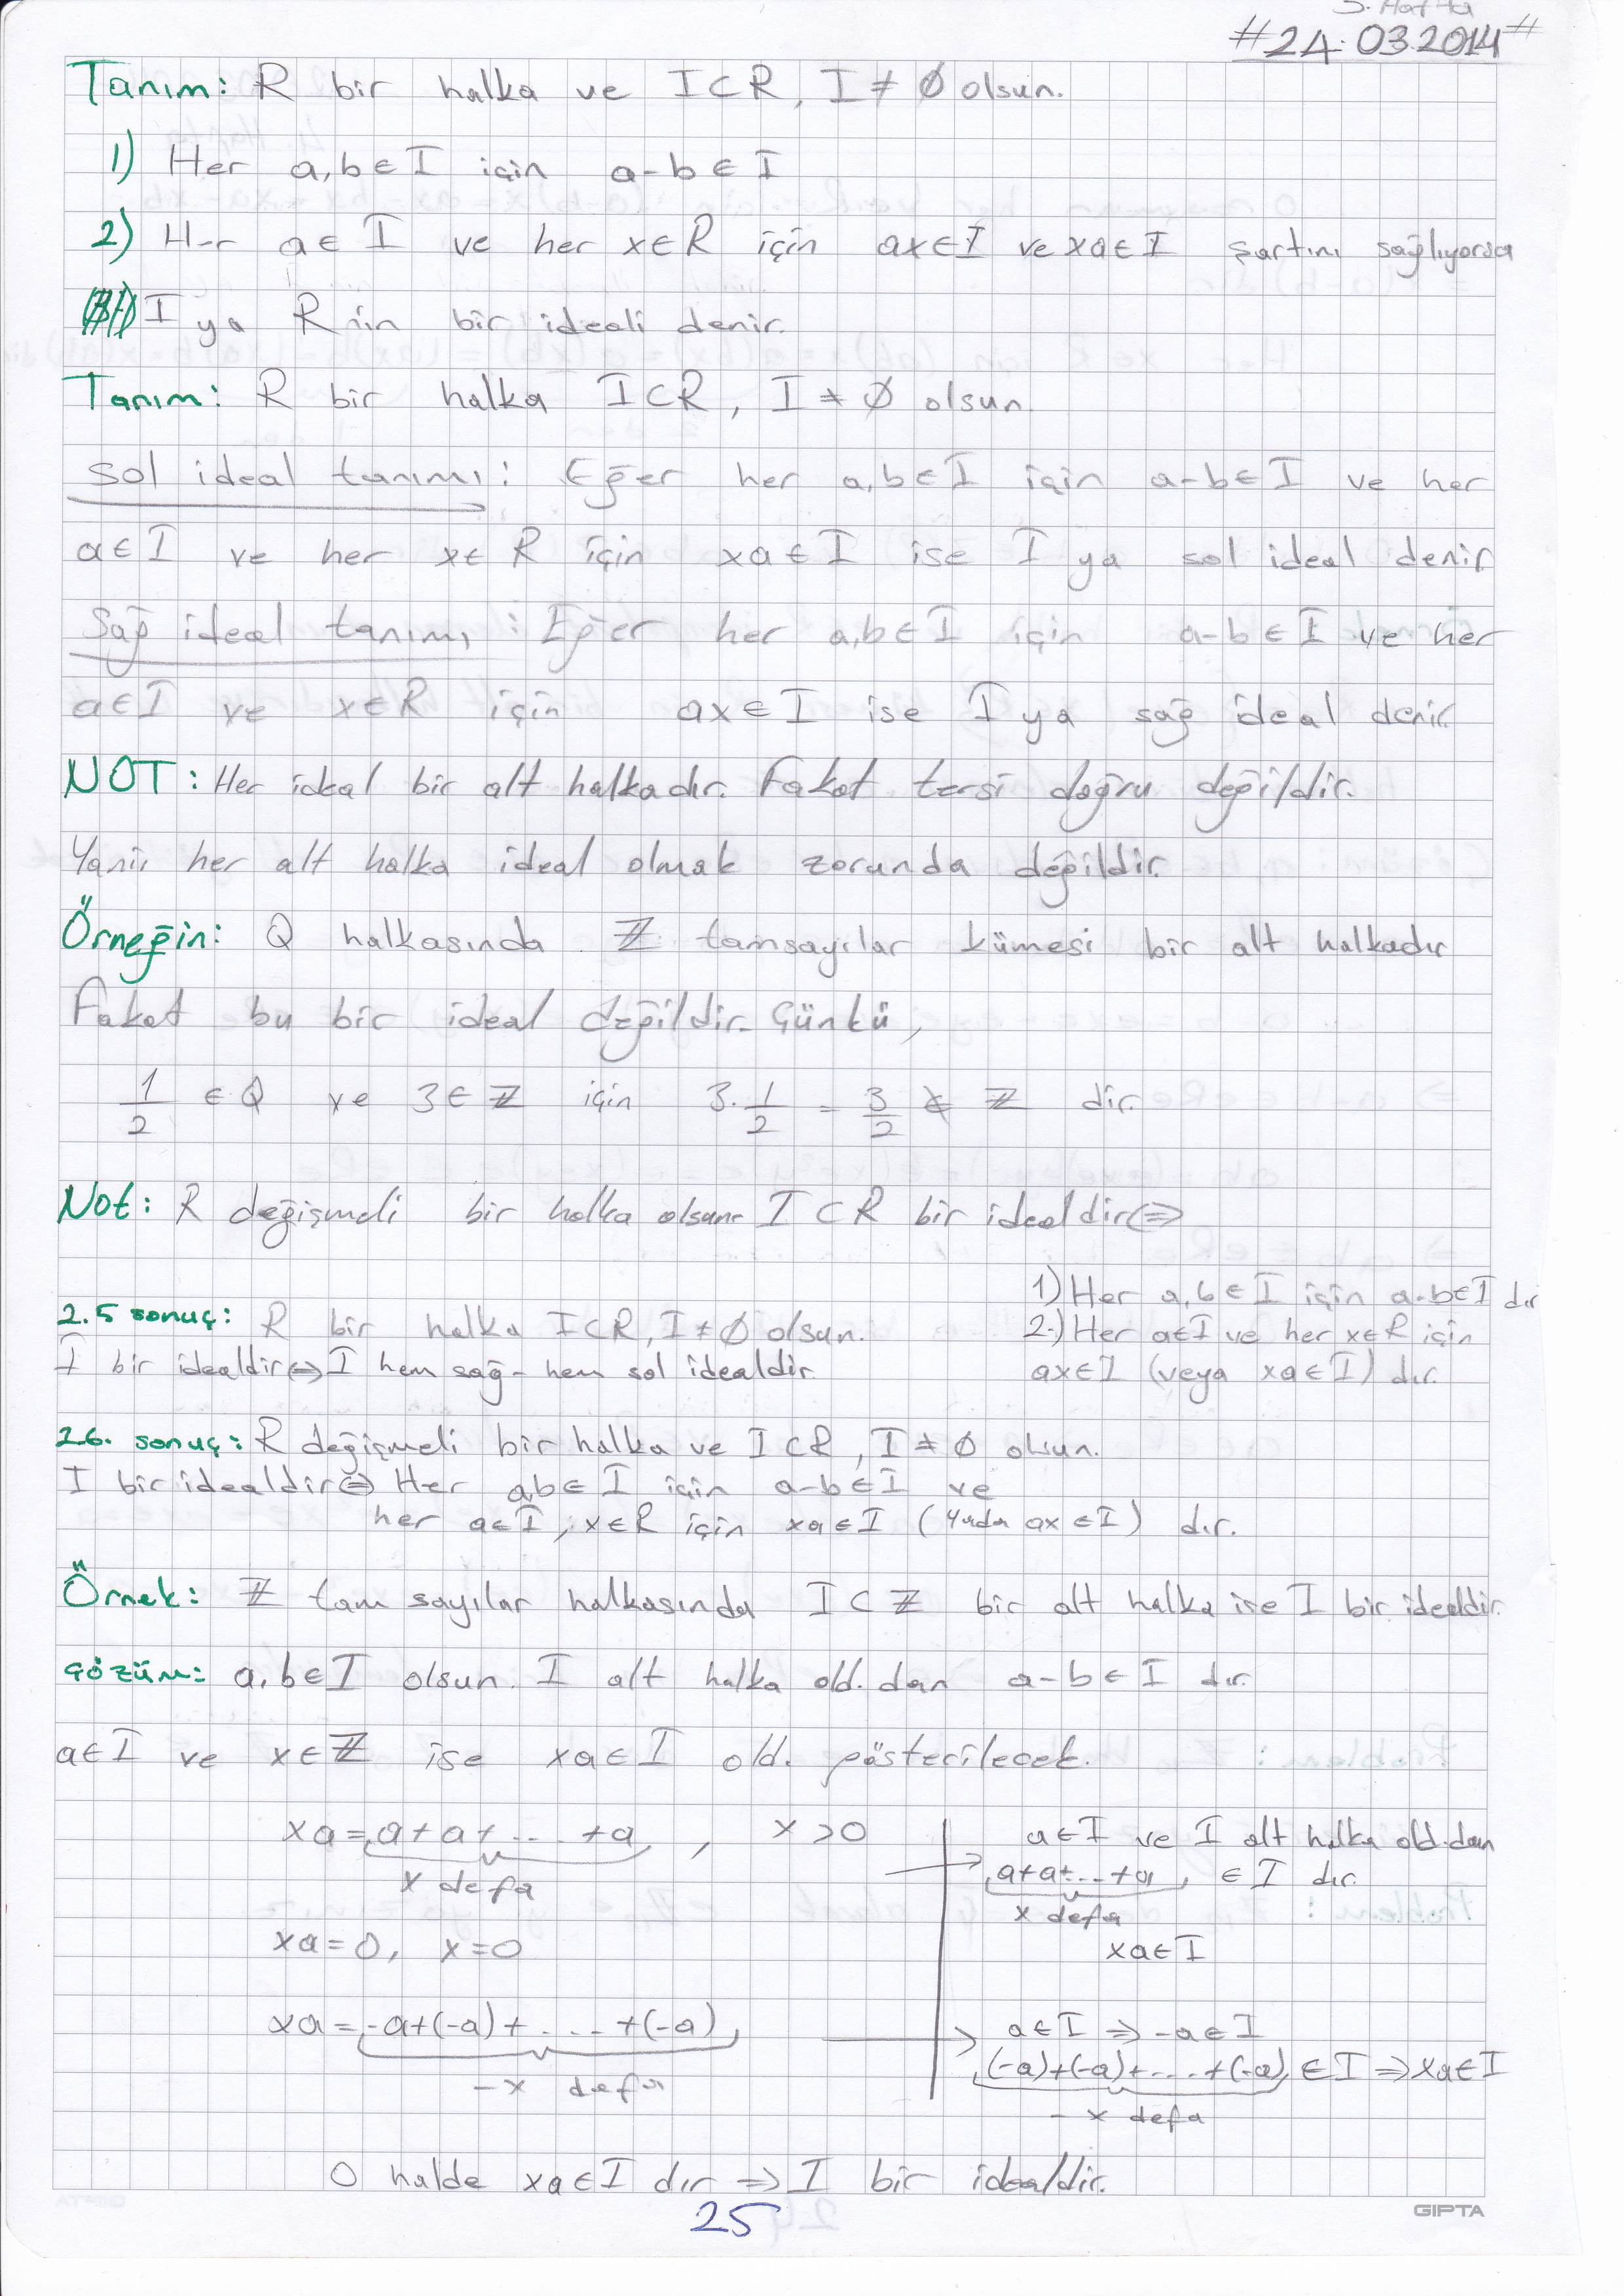 5. Hafta
#24.03.2014#
Tanım: R bir halka ve I⊂R, I≠∅ olsun.
1) Her a,b∈I için a-b∈I
2) Her a∈I ve her x∈R için ax∈I ve xa∈I şartını sağlıyorsa
I ya R nin bir ideali denir.
Tanım: R bir halka I⊂R, I≠∅ olsun.
Sol ideal tanımı: Eğer her a,b∈I için a-b∈I ve her
a∈I ve her x∈R için xa∈I ise I ya sol ideal denir
Sağ ideal tanımı: Eğer her a,b∈I için a-b∈I ve her
a∈I ve x∈R için ax∈I ise I ya sağ ideal denir.
NOT: Her ideal bir alt halkadır. Fakat tersi doğru değildir.
Yani, her alt halka ideal olmak zorunda değildir.
Örneğin: Q halkasında ℤ tamsayılar kümesi bir alt halkadır
Fakat bu bir ideal değildir. Çünkü,
1/2 ∈ Q ve 3∈ℤ için 3.1/2 = 3/2 ∉ ℤ dir.
Not: R değişmeli bir halka olsun. I⊂R bir idealdir⇔
1) Her a,b∈I için a-b∈I dır
2.) Her a∈I ve her x∈R için
ax∈I (veya xa∈I) dır.
2.5 sonuç: R bir halka I⊂R, I≠∅ olsun.
I bir idealdir⇔I hem sağ-hem sol idealdir.
2.6. sonuç: R değişmeli bir halka ve I⊂R, I≠∅ olsun.
I bir idealdir⇔ Her a,b∈I için a-b∈I ve
her a∈I, x∈R için xa∈I (Yada ax∈I) dır.
Örnek: ℤ tam sayılar halkasında I⊂ℤ bir alt halka ise I bir idealdir.
Çözüm: a,b∈I olsun. I alt halka old.dan a-b∈I dır.
a∈I ve x∈ℤ ise xa∈I old. gösterilecek.
xa=a+a+....+a, x>0
x defa
a∈I ve I alt halka old.dan
a+a+...+a ∈I dır.
x defa
xa∈I
xa=0, x=0
xa=-a+(-a)+....+(-a)
-x defa
a∈I ⇒ -a∈I
(-a)+(-a)+....+(-a)∈I ⇒xa∈I
-x defa
O halde xa∈I dır ⇒ I bir idealdir.
25
GIPTA